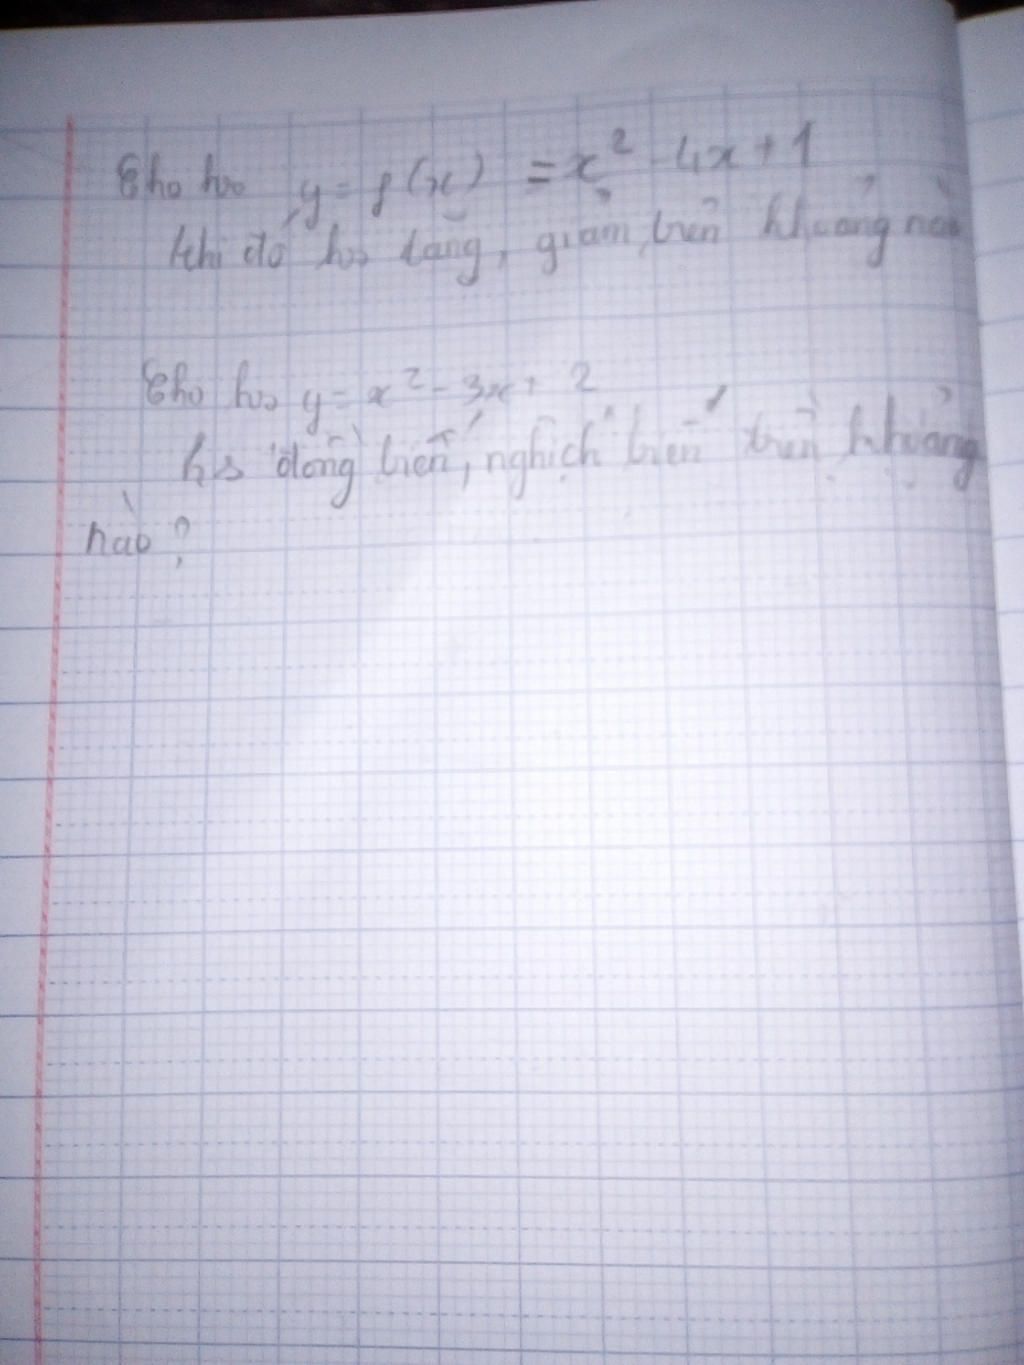 Cho hso y = f(x) = x² - 4x + 1
khi đó hso tăng, giảm trên khoảng nào
Cho hso y = x² - 3x + 2
hs đồng biến, nghịch biến trên khoảng
nào ?